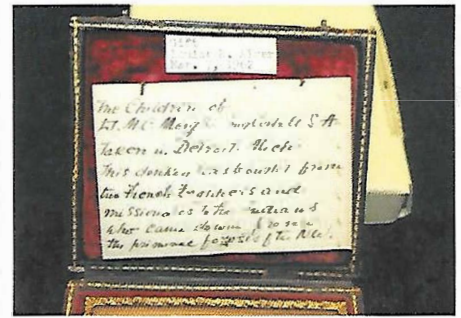 Gift
Mar. 1962
The Children of
Lt. Mc
Taken in Detroit Mich
This donkey was bought from
two French Trappers and
missionaries to the indians
who came down
the primeval forests of the NW.